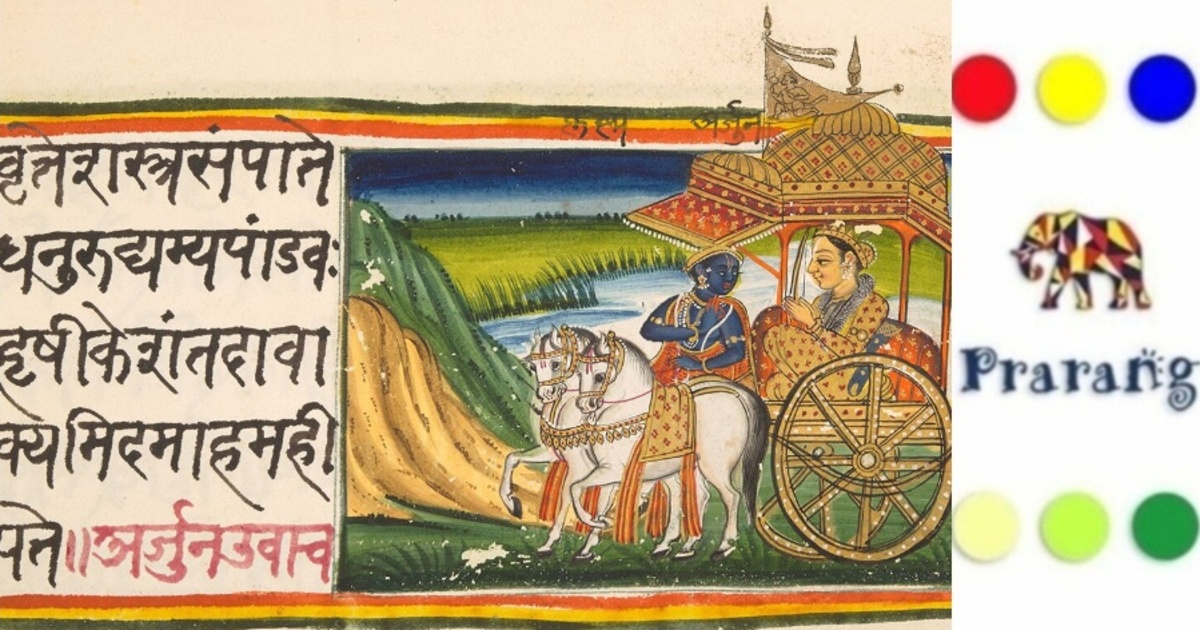 वृत्तेशस्त्रसंपाते
धनुरुद्यम्यपांडवः
हृषीकेशंतदावा
क्यमिदमाहमही
पते॥अर्जुनउवाच
कृष्ण अर्जुन
Prarang